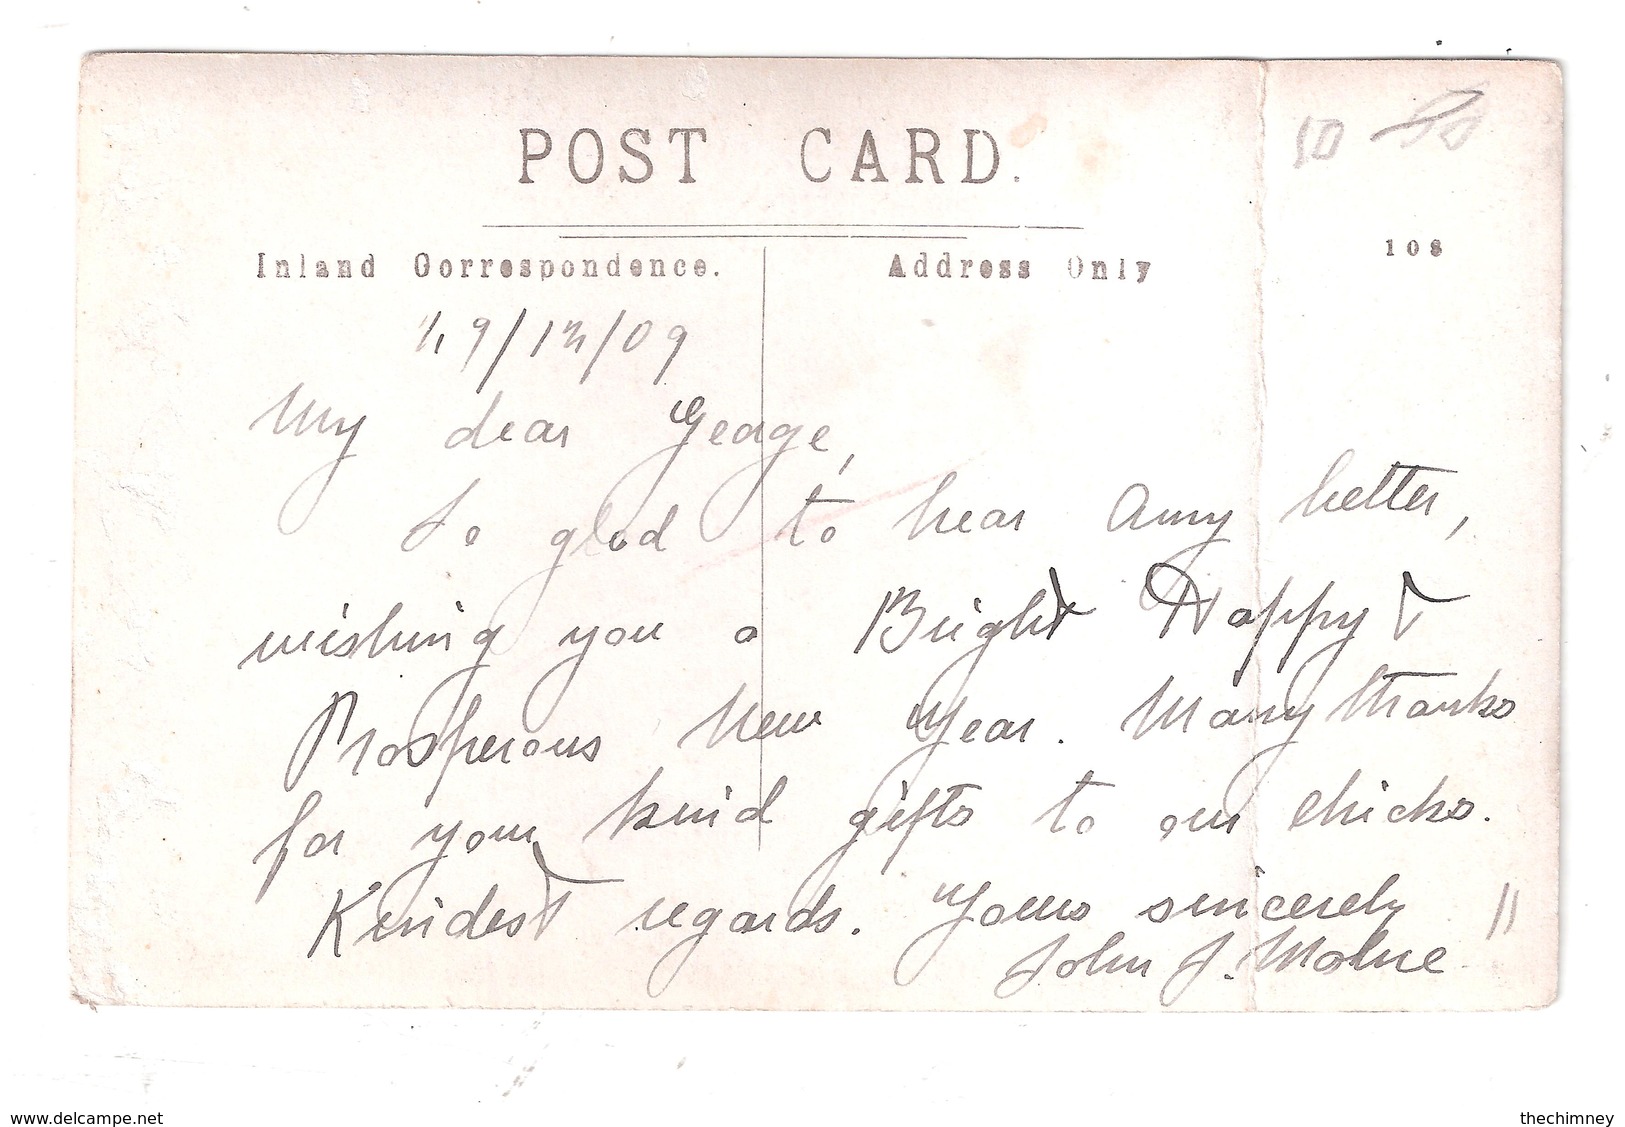 POST CARD.
Inland Correspondence.
Address Only
108
50
/12/09
My dear George,
So glad to hear Amy better,
wishing you a Bright Happy &
Prosperous New Year. Many thanks
for your kind gifts to our chicks.
Kindest regards. Yours sincerely
John J.
www.delcampe.net
thechimney